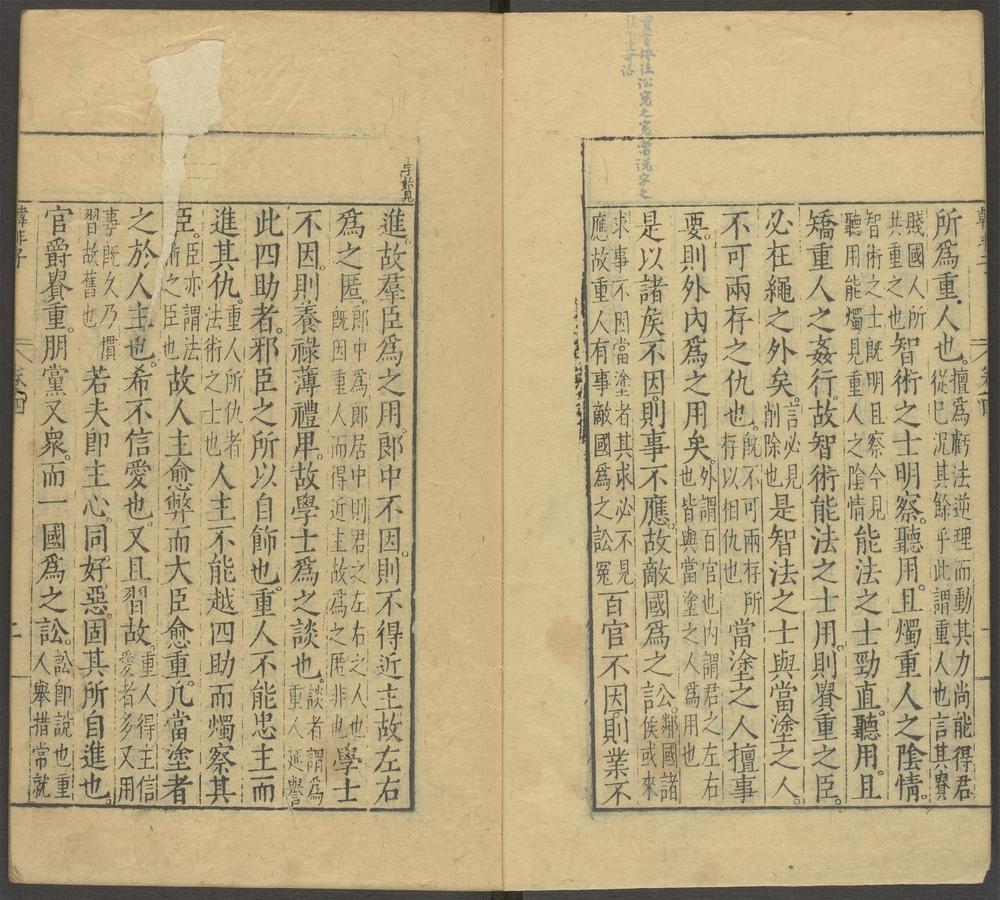 所爲重人也。擅爲虧法逆理而動其力尚能得君從巳況其餘乎此謂重人也言其賽
賤國人所共重之也智術之士明察。聽用。且燭重人之陰情。
智術之士旣明且察今見聽用能燭見重人之陰情能法之士勁直。聽用。且
矯重人之姦行。故智術能法之士用。則貴重之臣。
必在繩之外矣。言必見削除也是智法之士與當塗之人。
不可兩存之仇也。旣不可兩存所存以相仇也當塗之人擅事
要。則外內爲之用矣。外謂百官也内謂君之左右也皆與當塗之人爲用也
是以諸矦不因。則事不應。故敵國爲之訟。鄰國諸侯或來
求事不因當塗者其求必不見應故重人有事敵國爲之訟冤百官不因。則業不
進。故羣臣爲之用。郎中不因。則不得近主故左右
爲之匿。郎中爲郎居中則君之左右之人也旣因重人而得近主故爲之匿非也學士
不因。則養祿薄禮卑。故學士爲之談也。談者謂爲重人延譽
此四助者。邪臣之所以自飾也。重人不能忠主而
進其仇。重人所仇者法術之士也人主不能越四助而燭察其
臣。臣亦謂法術之臣也故人主愈弊而大臣愈重。凡當塗者
之於人主也。希不信愛也。又且習故。重人得主信愛者多又用
事旣久乃慣習故舊也若夫卽主心。同好惡。固其所自進也。
官爵貴重。朋黨又衆。而一國爲之訟。訟卽說也重人舉措常就
韓非子
卷四
二
字始見